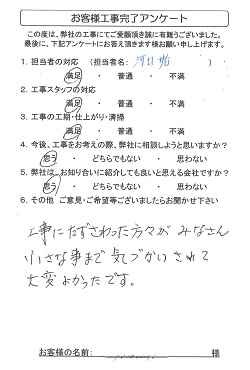 お客様工事完了アンケート
この度は、弊社の工事にてご愛顧頂き誠に有難うございました。
最後に、下記アンケートにお答え頂きます様お願い申し上げます。
1. 担当者の対応 (担当者名: 河口 )
満足 ・ 普通 ・ 不満
2. 工事スタッフの対応
満足 ・ 普通 ・ 不満
3. 工事の工期・仕上がり・清掃
満足 ・ 普通 ・ 不満
4. 今後、工事をお考えの際、弊社に相談しようと思いますか?
思う ・ どちらでもない ・ 思わない
5. 弊社は、お知り合いに紹介しても良いと思える会社ですか?
思う ・ どちらでもない ・ 思わない
6. その他 ご意見・ご希望等ございましたらお聞かせ下さい
工事にたずさわった方々が みなさん
小さな事まで 気づかい されて
大変よかったです。
お客様の名前: 様